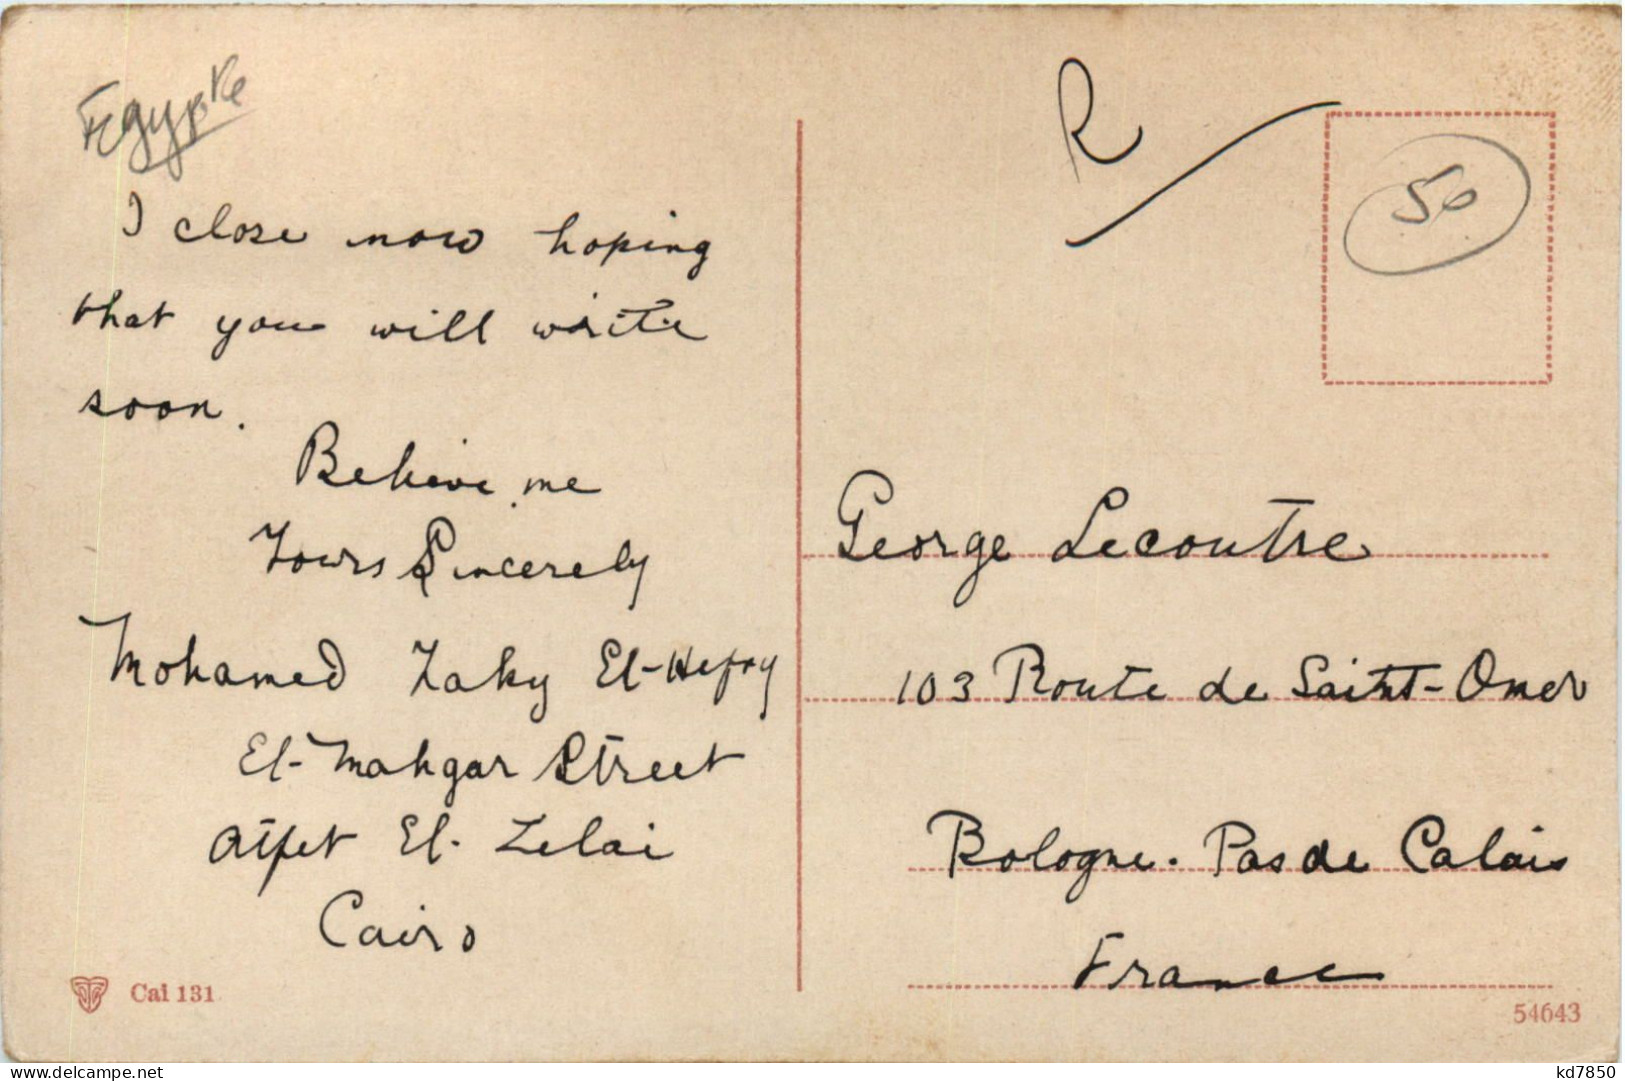 Egypte
I close now hoping
that you will write
soon.
Believe me
Yours Sincerely
Mohamed Zaky El-Hefny
El-Mahgar Street
Atfet El-Zelai
Cairo
Cai 131
R
50
George Lecoutre
103 Route de Saint-Omer
Bologne. Pas de Calais
France
54643
www.delcampe.net
kd7850